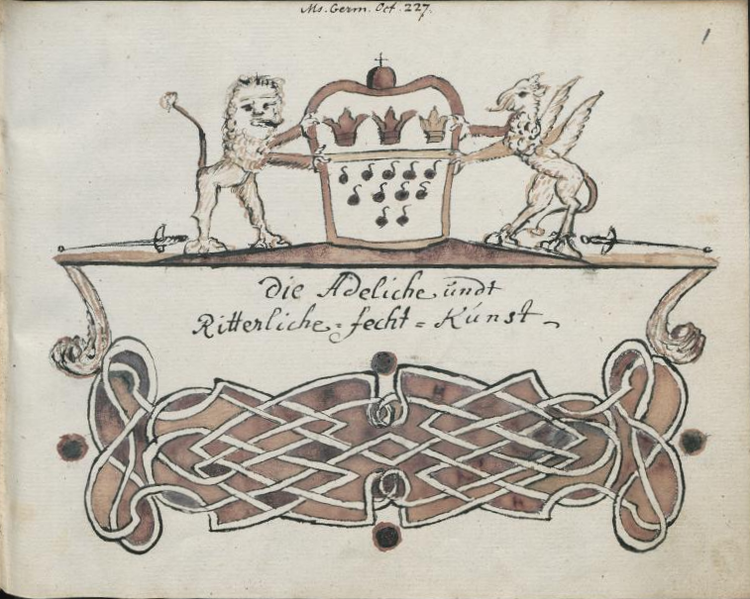 Ms. Germ. Oct. 227.
1
Die Adeliche ündt
Ritterliche = fecht = Kúnst